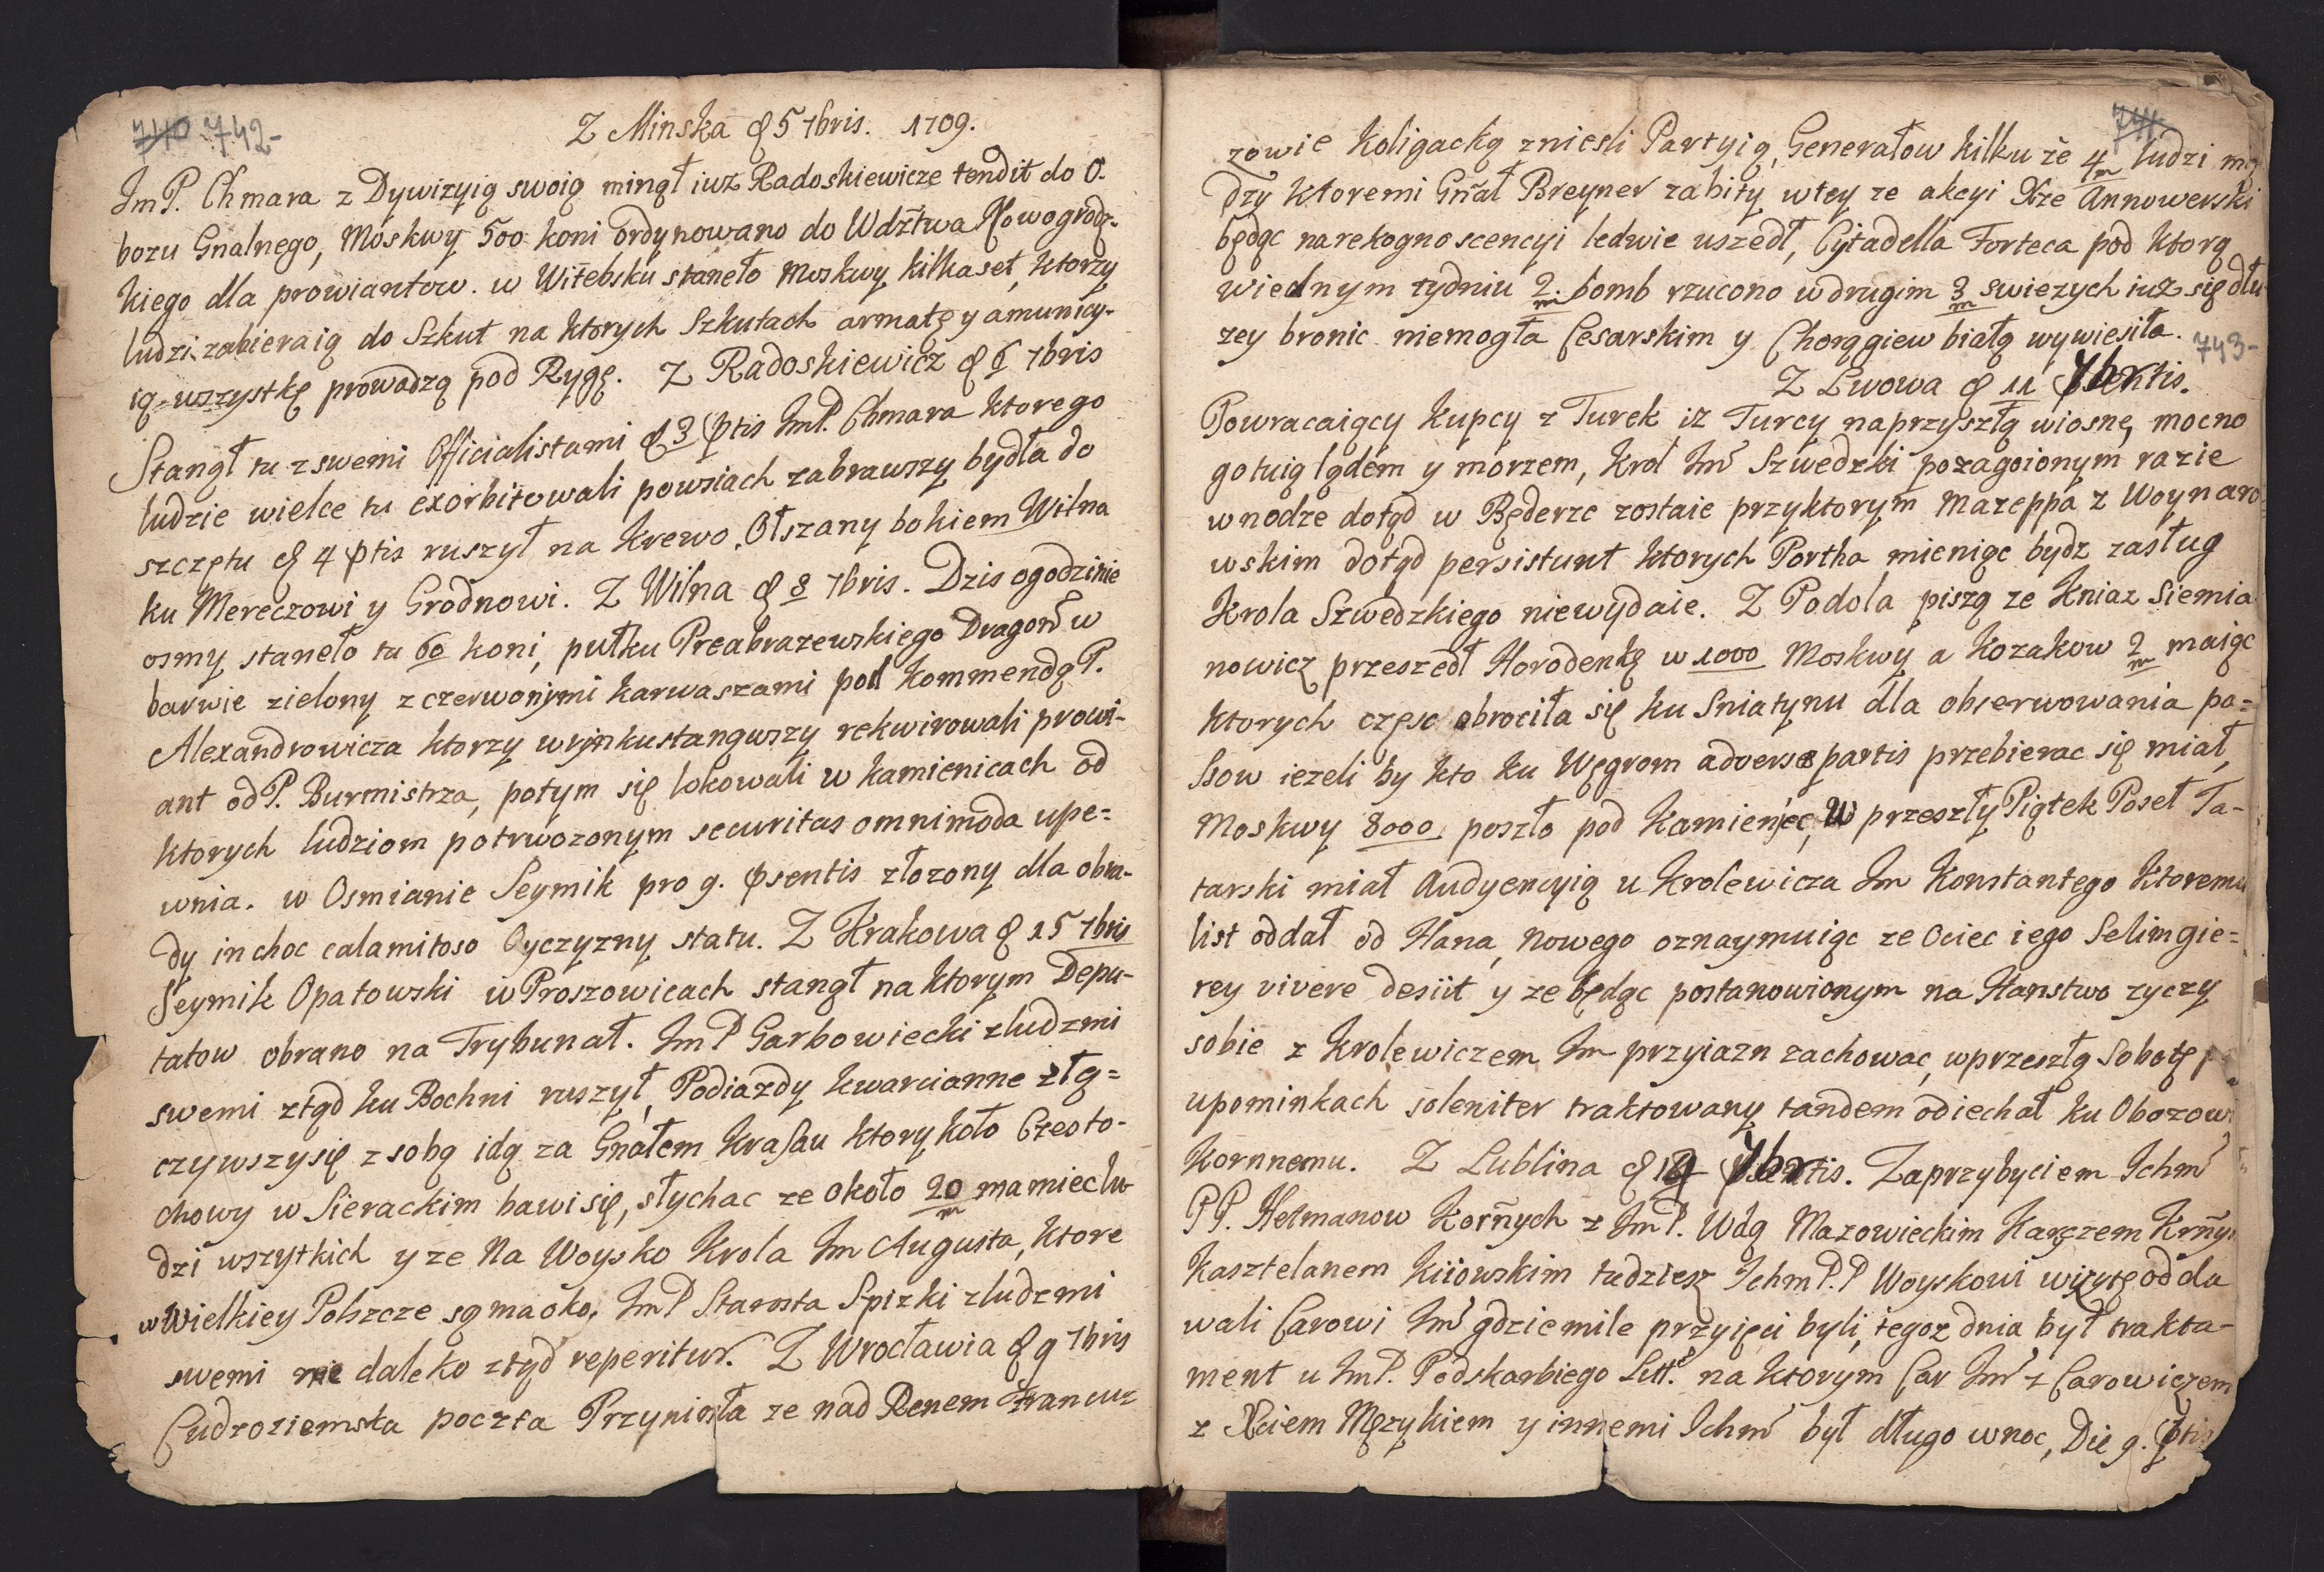 740 742-
Z Minska d 5 7bris. 1709.
ImP. Chmara z Dywizyią swoią minął iuz Radoskiewicze tendit do O.
bozu Gnalnego, Moskwy 500 koni ordynowano do Wdztwa Nowogrodz.
kiego dla prowiantow. w Witebsku staneło Moskwy kilkaset, ktorzy
ludzi zabieraią do Szkut na ktorych Szkutach armatę y amunicy-
ią wszystkę prowadzą pod Rygę. Z Radoskiewicz d 6 7bris
Stanął tu z swemi Officialistami d 3 ptis ImP. Chmara ktorego
ludzie wielce tu exorbitowali powsiach zabrawszy bydła do
szczętu d 4 ptis ruszył na Krewo, Olszany bokiem Wilna
ku Mereczowi y Grodnowi. Z Wilna d 8 7bris. Dzis ogodzinie
osmy staneło tu 60 koni, pułku Preabrazewskiego Dragonów w
barwie zielony z czerwonymi karwaszami pod kommendą P.
Alexandrowicza ktorzy wrynkustanąwszy rekwirowali prowi-
ant od P. Burmistrza, potym się lokowali w kamienicach od
ktorych ludziom potrwozonym securitas omnimoda upe=
wnia. w Osmianie Seymik pro 9. psentis złozony dla obra-
dy in choc calamitoso Oyczyzny statu. Z Krakowa d 15 7bris
Seymik Opatowski w Proszowicach stanął na ktorym Depu-
tatow obrano na Trybunał. ImP Garbowiecki zludzmi
swemi ztąd ku Bochni ruszył, Podiazdy kwarcianne złą=
czywszysię z sobą idą za Gnałem Krassau ktory koło Często-
chowy w Sierackim bawi się, słychac ze około 20 m ma miec lu
dzi wszytkich y ze na Woysko Krola Im Augusta, ktore
w Wielkiey Polszcze są ma oko, ImP Starosta Spizki zludzmi
swemi nie daleko ztąd reperitur. Z Wrocławia d 9 7bris
Cudzoziemska poczta Przyniosła ze nad Renem Francuz
741
zowie Koligacką zniesli Partyią, Generałow kilku ze 4 m ludzi mię
dzy ktoremi Gnał Breyner zabity wtey ze akcyi Xze Annowerski
będąc narekognoscencyi ledwie uszedł, Cytadella Forteca pod ktorą
wiednym tydniu 2. m bomb rzucono wdrugim 3 m swiezych iuz się dłu
zey bronic niemogła Cesarskim y Chorągiew białą wywiesiła.
743-
Z Lwowa d 11 7br
Powracaiący Kupcy z Turek iz Turcy naprzyszłą wiosnę, mocno
gotuią lądem y morzem, Krol Im Szwedzki pozagoionym razie
wnodze dotąd w Będerze zostaie przyktorym Mazeppa z Woynaro
wskim dotąd persistunt ktorych Portha mieniąc bydz zasług
Krola Szwedzkiego niewydaie. Z Podola piszą ze Kniaz Siemia
nowicz przeszedł Horodenkę w 1000 Moskwy a Kozakow 2 m maiąc
ktorych częsc obrociła się ku Sniatynu dla obserwowania pa=
ssow iezeli by kto ku Węgrom adversae partis przebierac się miał,
Moskwy 8000 poszło pod Kamieniec, W przeszły Piątek Poseł Ta-
tarski miał Audyencyią u Krolewicza Im Konstantego ktoremu
list oddał od Hana, nowego oznaymuiąc ze Ociec iego Selimgie=
rey vivere desiit y ze będąc postanowionym na Hanstwo zyczy
sobie z Krolewiczem Im przyiazn zachowac, wprzeszłą Sobotę
upominkach soleniter traktowany tandem odiechał ku Obozow
Kornnemu. Z Lublina d 19 7br Zaprzybyciem Ichm
PP. Hetmanow Kornych z ImP. Wdą Mazowieckim Kanczem
Kasztelanem Kiiowskim tudziesz IchmP.P Woyskowi wizytę odda
wali Carowi Im gdzie mile przyięci byli, tegoz dnia był trakta-
ment u ImP. Podskarbiego Litt. na ktorym Car Im z Carowiczem
z Xciem Męzykiem y innemi Ichm był długo wnoc, Die 9. ptis